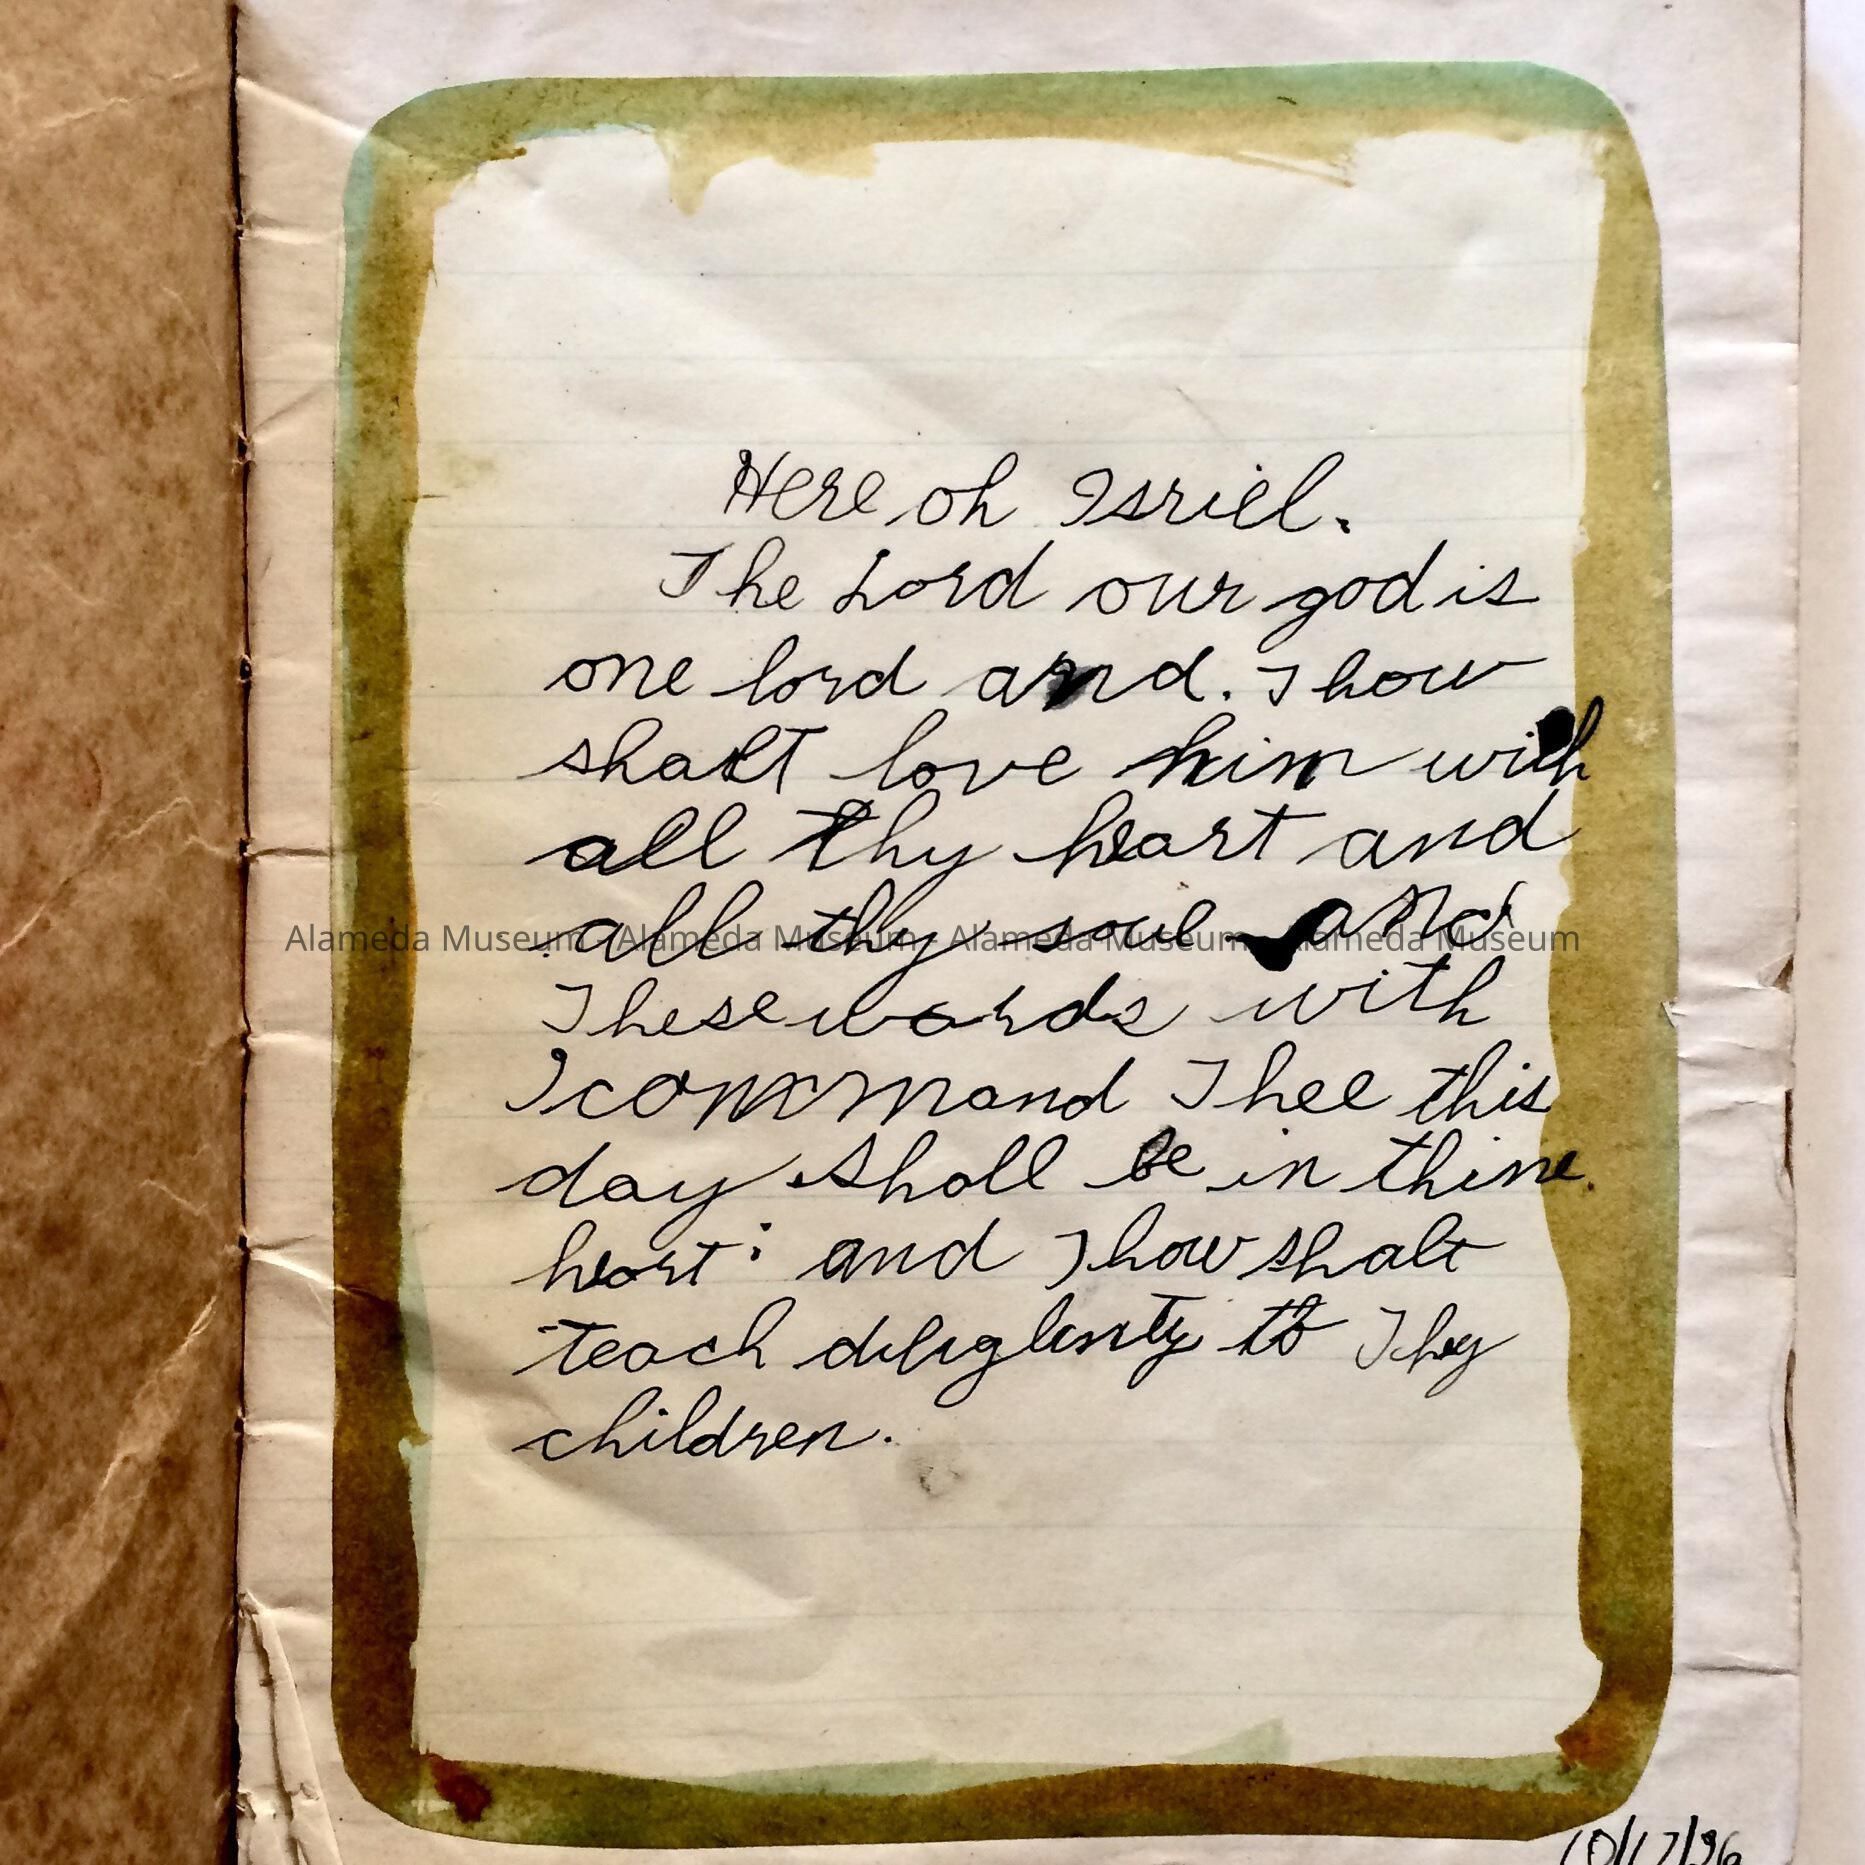 Here oh Isriel.
The Lord our god is
one lord and. Thow
shalt love him with
all thy heart and
all thy soul and
Alameda Museum - Alameda Museum - Alameda Museum - Alameda Museum
These words with
I command Thee this
day shall be in thine.
heart: and Thow shalt
teach diliglenty to Thy
children.
10/17/36